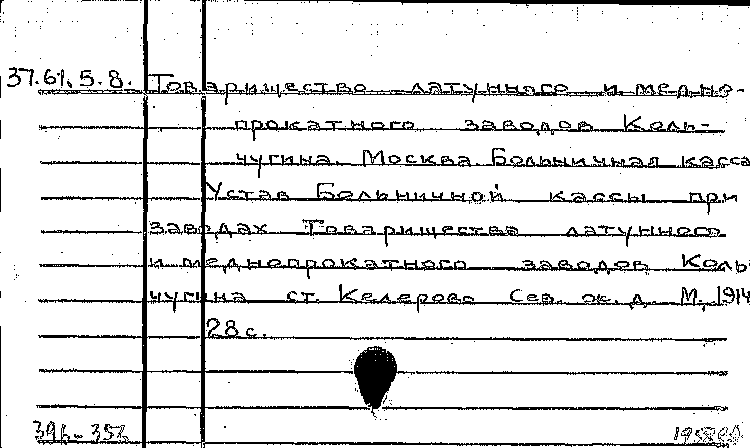 37.61.5.8. Товарищество латунного и медно-
прокатного заводов Коль-
чугина. Москва. Больничная касса
Устав Больничной кассы при
заводах Товарищества латунного
и меднопрокатного заводов Коль-
чугина ст. Келерово Сев. ж. д. М., 1914
28 с.